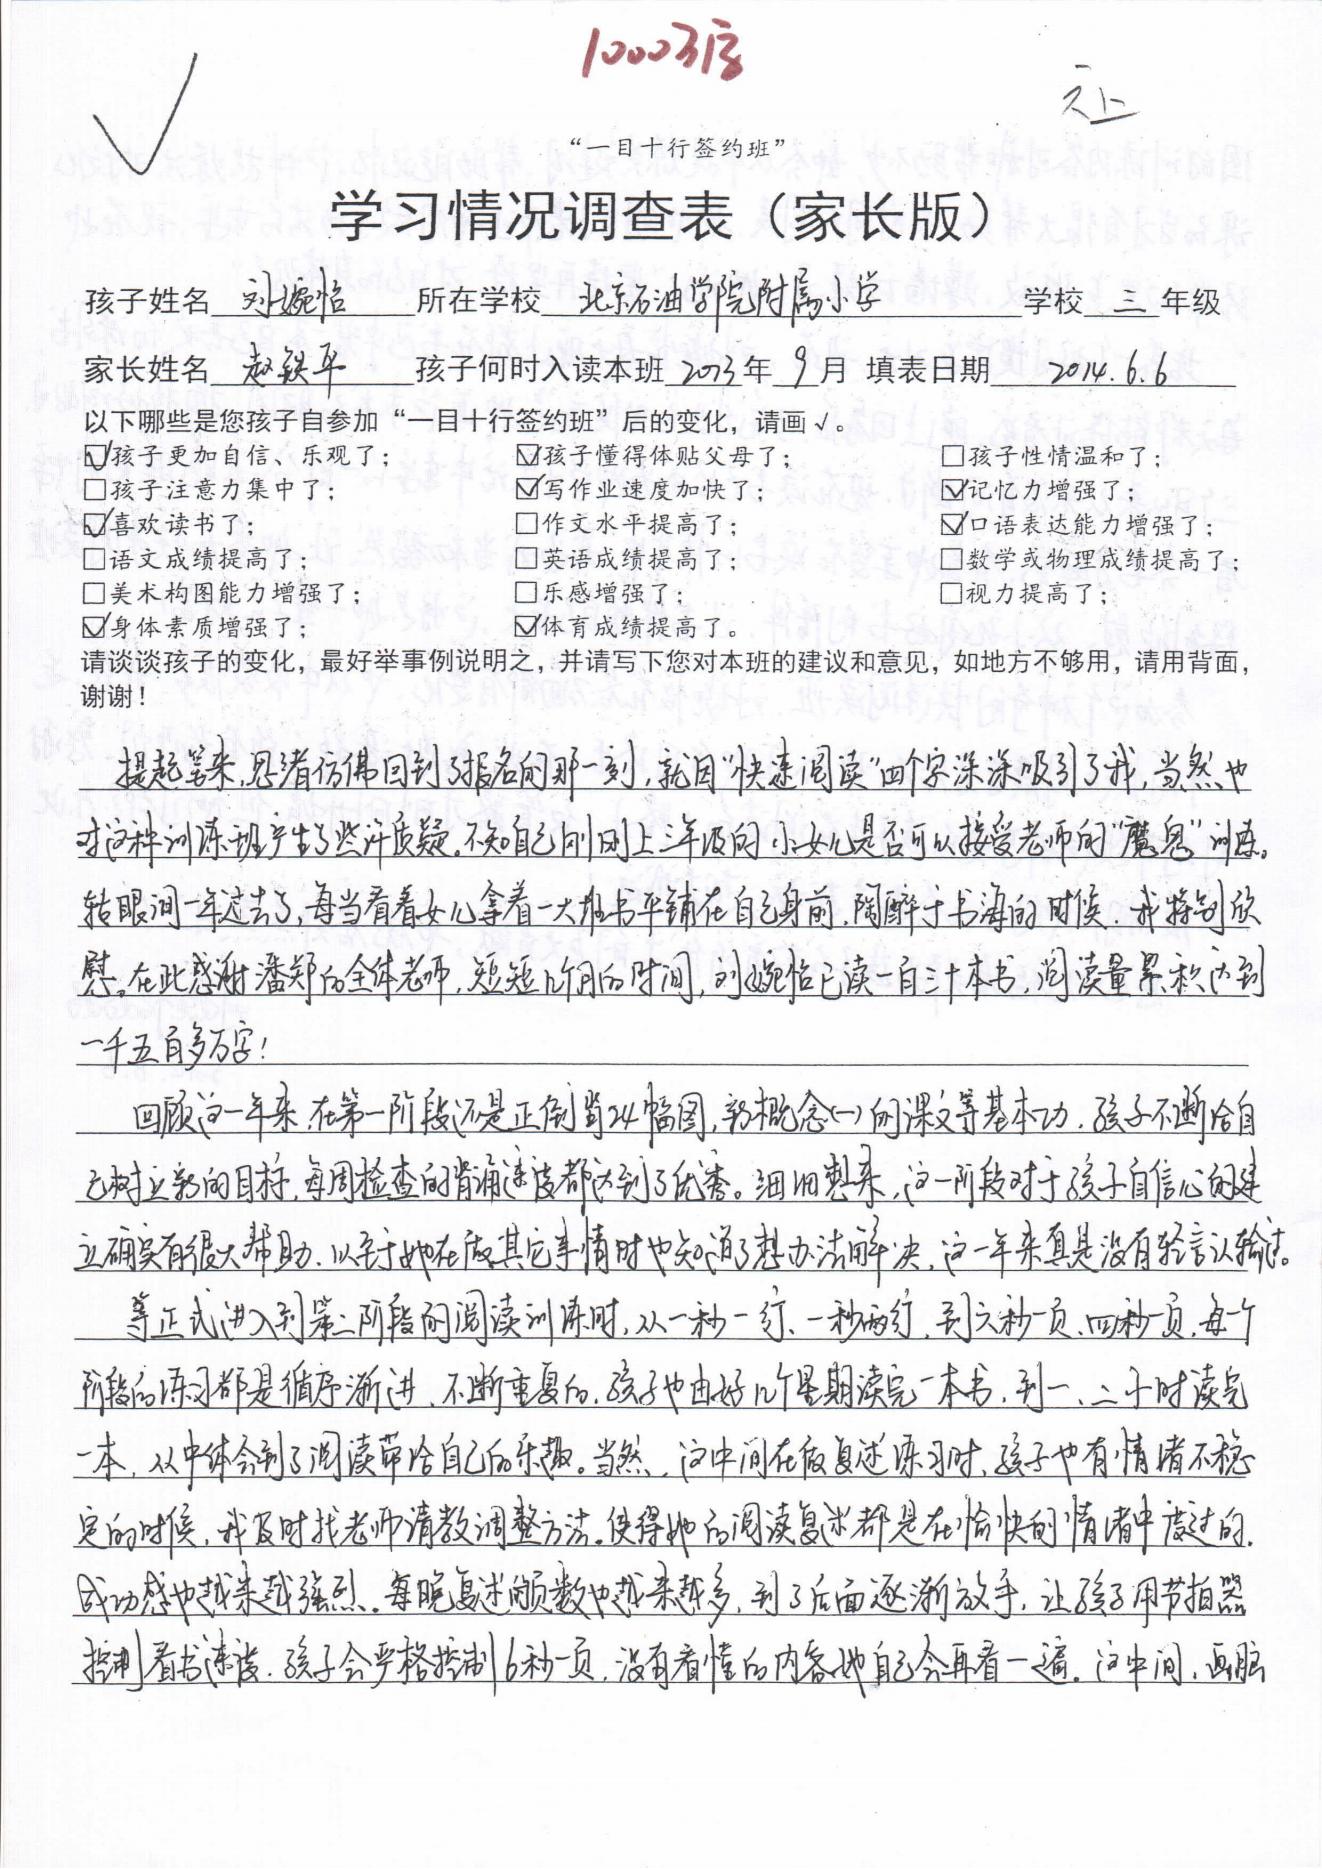 1000
“一目十行签约班”
学习情况调查表（家长版）
孩子姓名 刘婉怡 所在学校 北京石油学院附属小学 学校 三 年级
家长姓名 赵铁平 孩子何时入读本班 2013年 9月 填表日期 2014.6.6
以下哪些是您孩子自参加“一目十行签约班”后的变化，请画√。
☑孩子更加自信、乐观了； ☑孩子懂得体贴父母了； □孩子性情温和了；
□孩子注意力集中了； ☑写作业速度加快了； ☑记忆力增强了；
☑喜欢读书了； □作文水平提高了； ☑口语表达能力增强了；
□语文成绩提高了； □英语成绩提高了； □数学或物理成绩提高了；
□美术构图能力增强了； □乐感增强了； □视力提高了；
☑身体素质增强了； ☑体育成绩提高了。
请谈谈孩子的变化，最好举事例说明之，并请写下您对本班的建议和意见，如地方不够用，请用背面，
谢谢！
提起笔来，思绪仿佛回到了报名的那一刻，就因“快速阅读”四个字深深吸引了我，当然也
对这种训练班产生了些许质疑。不知自己刚刚上三年级的小女儿是否可以接受老师的“魔鬼”训练。
转眼间一年过去了，每当看着女儿拿着一大堆书平铺在自己身前，陶醉于书海的时候，我特别欣
慰。在此感谢潘郑的全体老师，短短几个月的时间，刘婉怡已读一百三十本书，阅读量累积达到
一千五百多万字！
回顾这一年来，在第一阶段还是正倒背24幅图，新概念(一)的课文等基本功，孩子不断给自
己树立新的目标，每周检查的背诵速度都达到了优秀。细细想来，这一阶段对于孩子自信心的建
立确实有很大帮助，以至于她在做其它事情时也知道了想办法解决，这一年来真是没有轻言认输过。
等正式进入到第二阶段的阅读训练时，从一秒一行、一秒两行，到六秒一页、四秒一页，每一个
阶段的练习都是循序渐进、不断重复的，孩子也由好几个星期读完一本书，到一、二小时读完
一本，从中体会到了阅读带给自己的乐趣。当然，这中间在做复述练习时，孩子也有情绪不稳
定的时候，我及时找老师请教调整方法。使得她的阅读复述都是在愉快的情绪中度过的，
成功感也越来越强烈。每晚复述的页数也越来越多，到了后面逐渐放手，让孩子用节拍器
控制看书速度，孩子会严格控制6秒一页，没有看懂的内容她自己会再看一遍。这中间，画脑